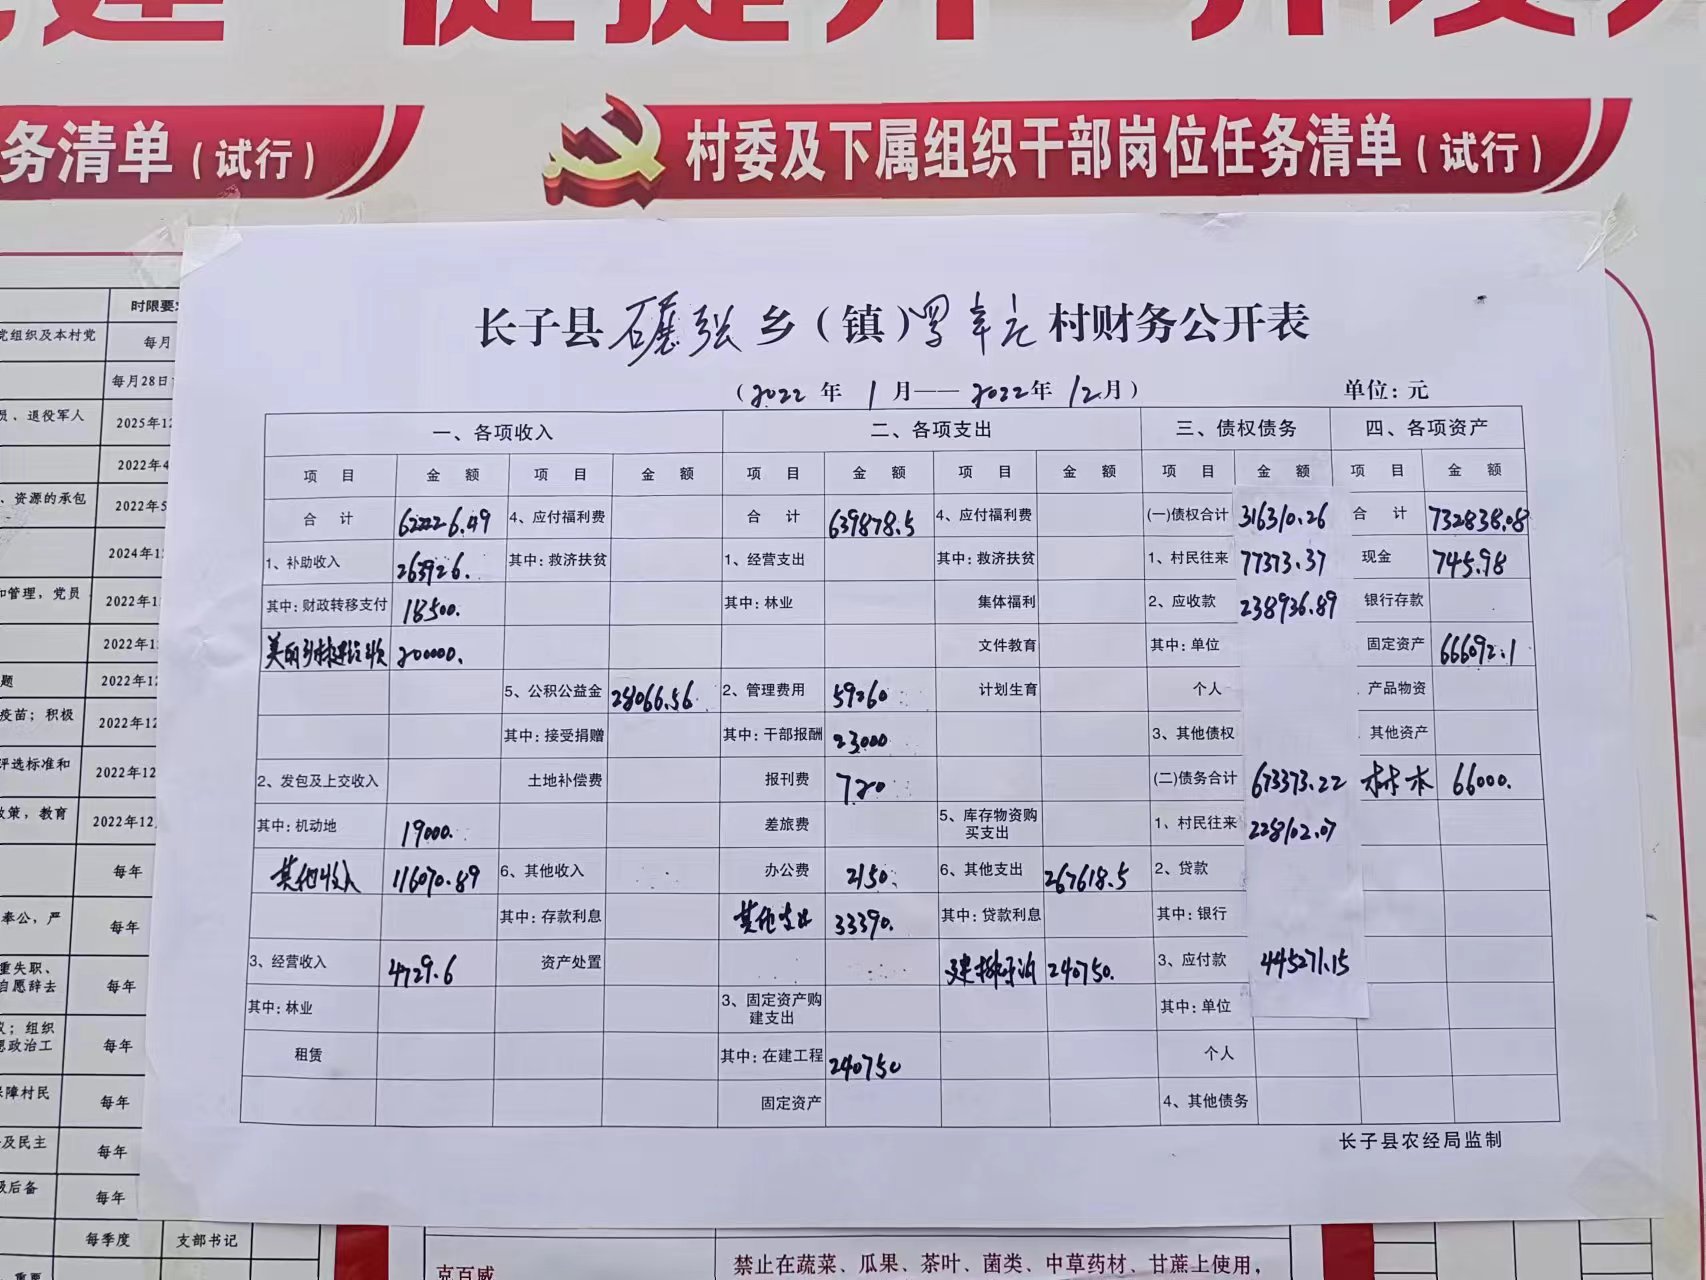 务清单(试行)
村委及下属组织干部岗位任务清单(试行)
时限要
党组织及本村党
每月
每月28日
员、退役军人
2025年12
2022年4
、资源的承包
2022年5
2024年1
和管理，党员
2022年1
2022年1
题
2022年12
疫苗；积极
2022年12
评选标准和
2022年12
政策，教育
2022年12
每年
奉公，严
每年
重失职、
自愿辞去
每年
议；组织
思政治工
每年
保障村民
每年
及民主
每年
级后备
每年
每季度 支部书记
长子县碾张乡(镇) 村财务公开表
(2022年1月——2022年12月) 单位:元
一、各项收入 二、各项支出 三、债权债务 四、各项资产
项目 金额 项目 金额 项目 金额 项目 金额 项目 金额 项目 金额
合计 622226.49 4、应付福利费 合计 639878.5 4、应付福利费 (一)债权合计 316310.26 合计 732838.08
1、补助收入 263926. 其中:救济扶贫 1、经营支出 其中:救济扶贫 1、村民往来 77373.37 现金 745.98
其中:财政转移支付 18500. 其中:林业 集体福利 2、应收款 238936.89 银行存款
200000. 文件教育 其中:单位 固定资产 666092.1
5、公积公益金 28066.56 2、管理费用 59260 计划生育 个人 产品物资
其中:接受捐赠 其中:干部报酬 23000 3、其他债权 其他资产
2、发包及上交收入 土地补偿费 报刊费 720 (二)债务合计 673373.22 林木 66000.
其中:机动地 19000. 差旅费 5、库存物资购买支出 1、村民往来 228102.07
其他收入 116070.89 6、其他收入 办公费 2150. 6、其他支出 267618.5 2、贷款
其中:存款利息 其他支出 33390. 其中:贷款利息 其中:银行
3、经营收入 4729.6 资产处置 240750. 3、应付款 445271.15
其中:林业 3、固定资产购建支出 其中:单位
租赁 其中:在建工程 240750 个人
固定资产 4、其他债务
长子县农经局监制
克百威
禁止在蔬菜、瓜果、茶叶、菌类、中草药材、甘蔗上使用，